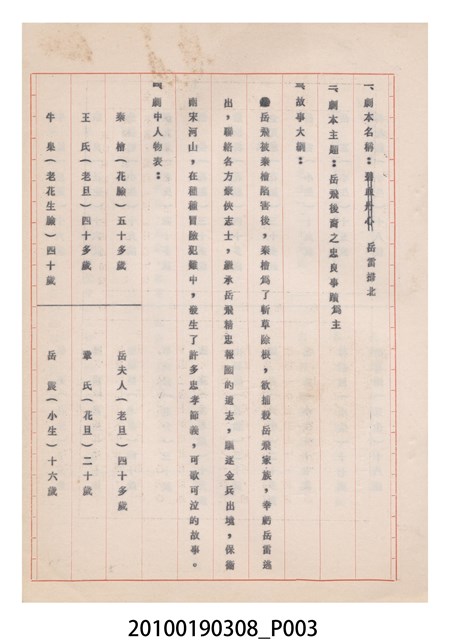 一、劇本名稱：碧血丹心 岳雷掃北
二、劇本主題：岳飛後裔之忠良事蹟爲主
三、故事大綱：
岳飛被秦檜陷害後，秦檜爲了斬草除根，欲捕殺岳飛家族，幸虧岳雷逃
出，聯絡各方豪俠志士，繼承岳飛精忠報國的遺志，驅逐金兵出境，保衛
南宋河山，在種種冒險犯難中，發生了許多忠孝節義，可歌可泣的故事。
四、劇中人物表：
秦 檜（花臉）五十多歲 岳夫人（老旦）四十多歲
王 氏（老旦）四十多歲 氏（花旦）二十歲
牛 臯（老花生臉）四十歲 岳 震（小生）十六歲
20100190308_P003